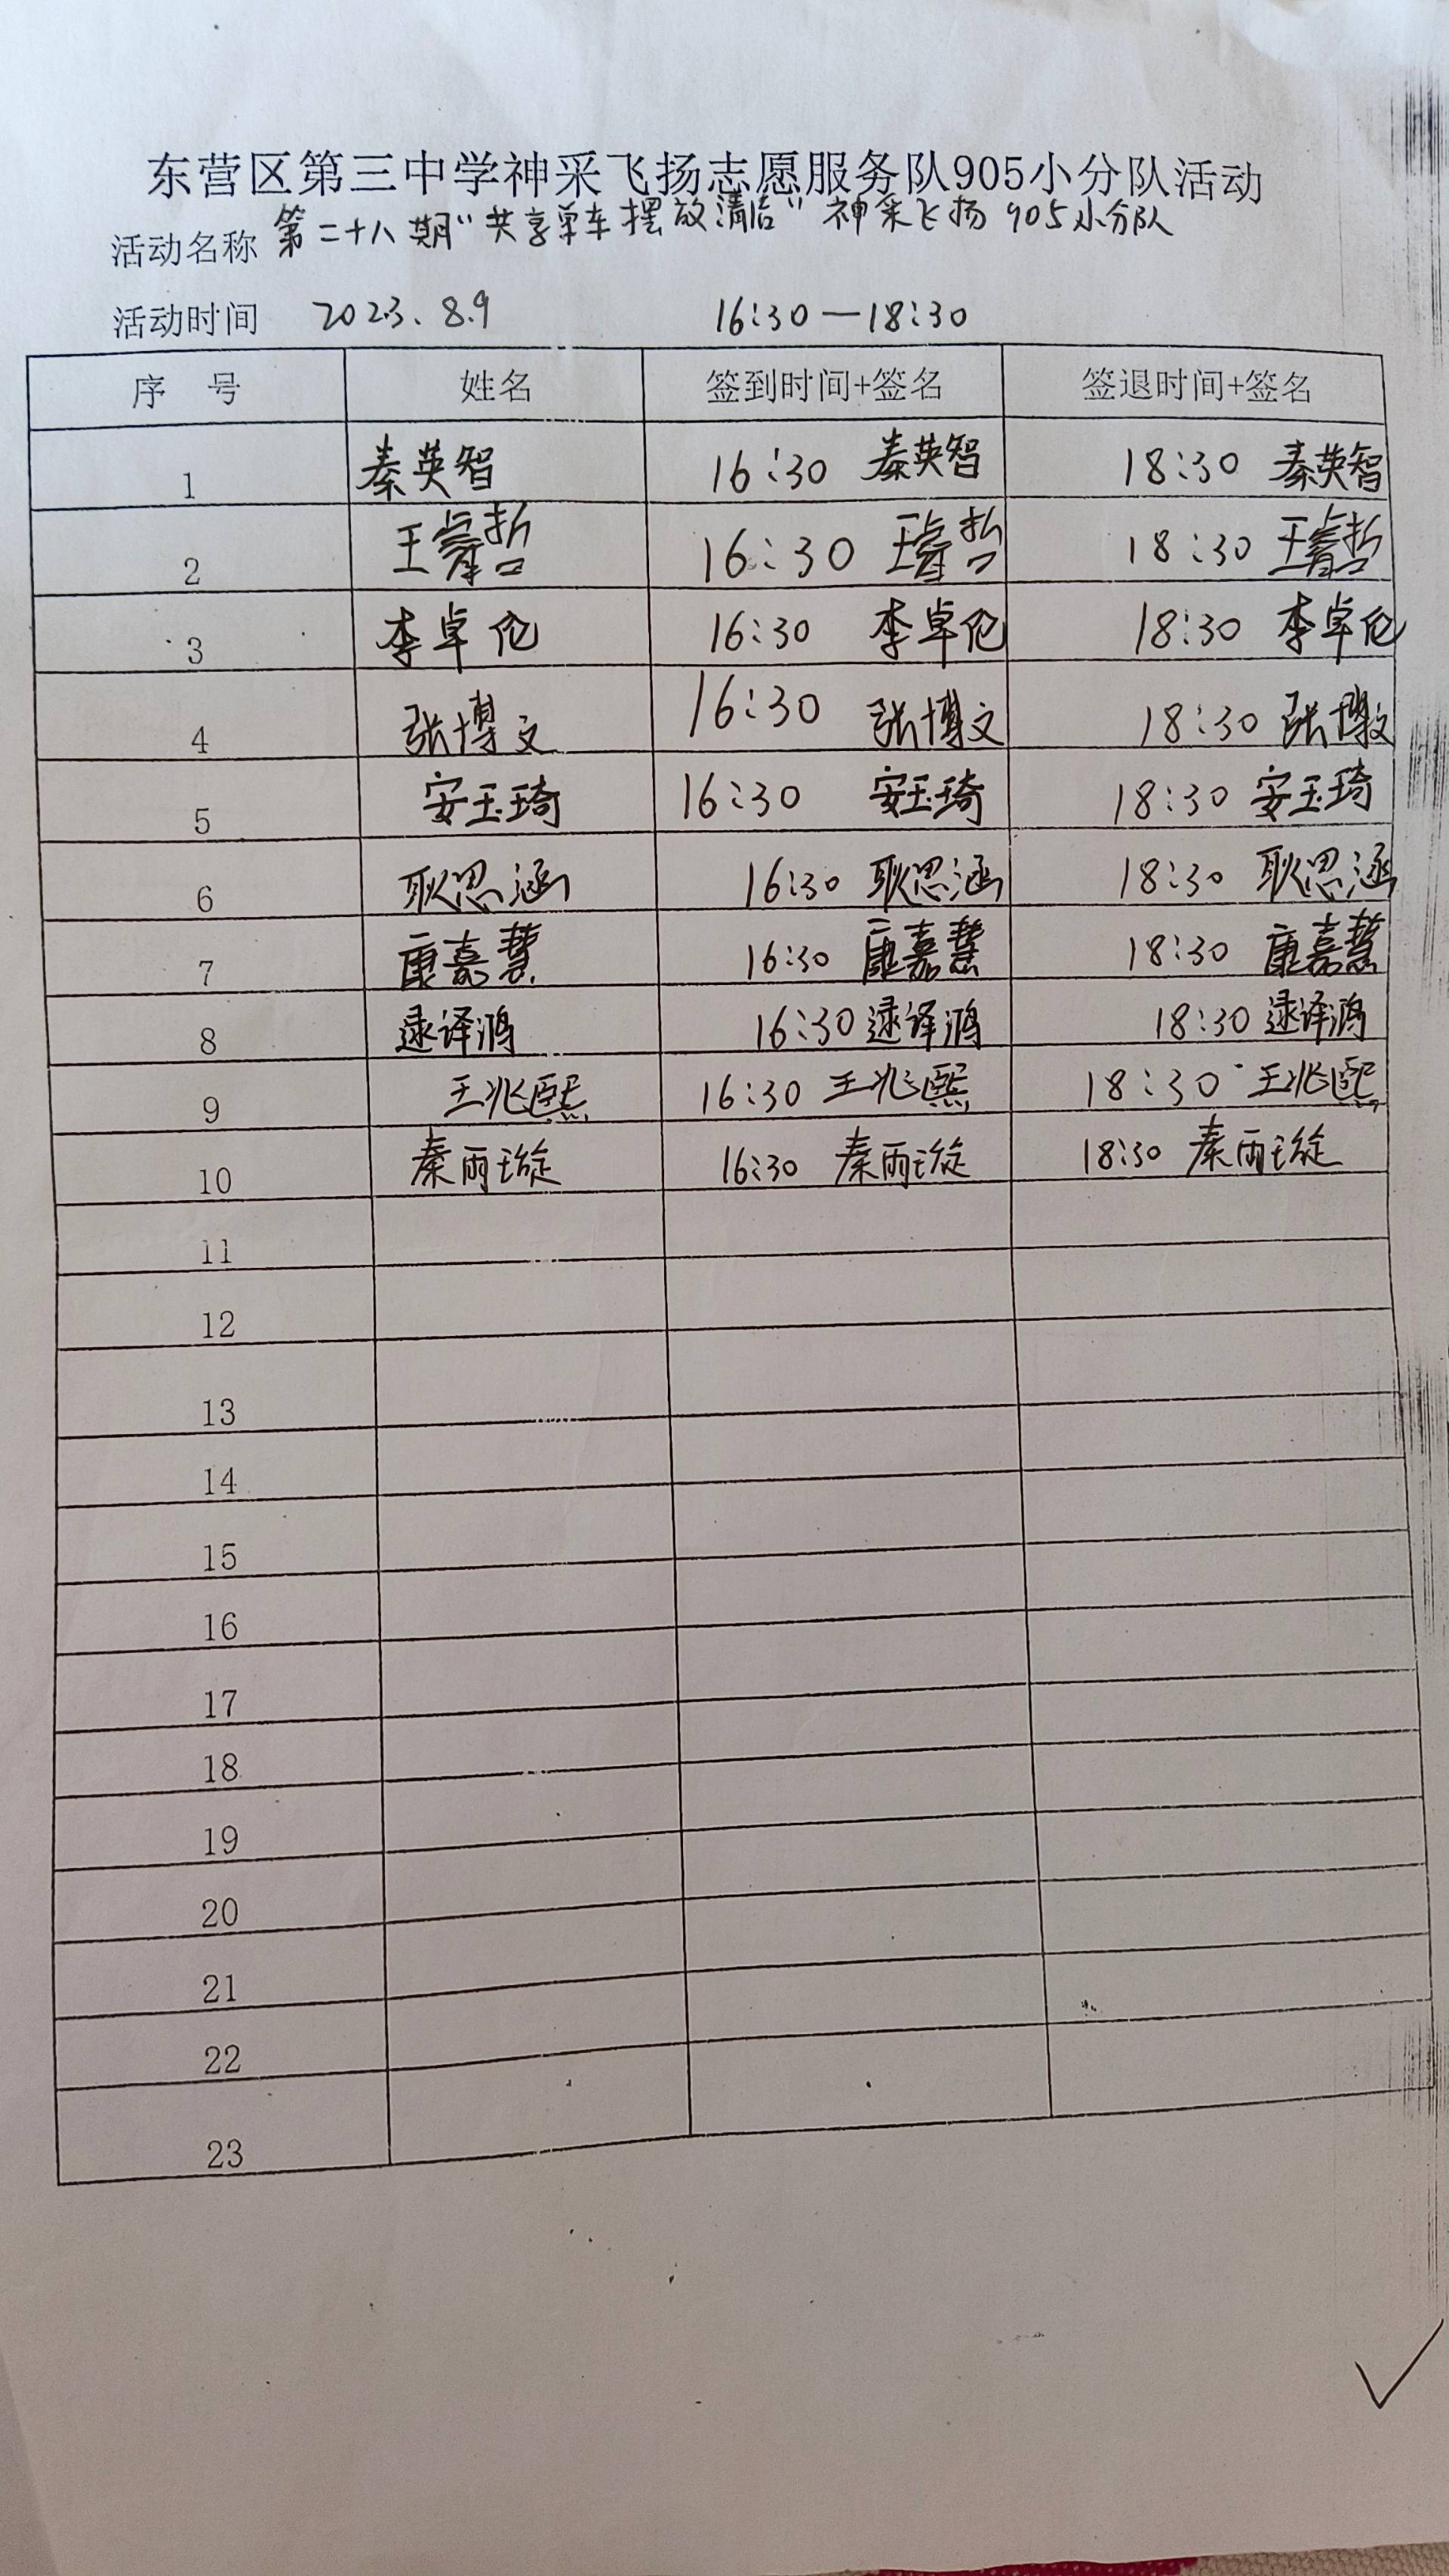 东营区第三中学神采飞扬志愿服务队905小分队活动
活动名称 第二十八期“共享单车摆放清洁”神采飞扬905小分队
活动时间 2023.8.9 16:30—18:30
序 号 姓名 签到时间+签名 签退时间+签名
1 秦英智 16:30 秦英智 18:30 秦英智
2 王睿哲 16:30 王睿哲 18:30 王睿哲
3 李卓伦 16:30 李卓伦 18:30 李卓伦
4 张博文 16:30 张博文 18:30 张博文
5 安玉琦 16:30 安玉琦 18:30 安玉琦
6 耿思涵 16:30 耿思涵 18:30 耿思涵
7 康嘉慧 16:30 康嘉慧 18:30 康嘉慧
8 逯译鸿 16:30 逯译鸿 18:30 逯译鸿
9 王兆熙 16:30 王兆熙 18:30 王兆熙
10 秦雨璇 16:30 秦雨璇 18:30 秦雨璇
11
12
13
14
15
16
17
18
19
20
21
22
23